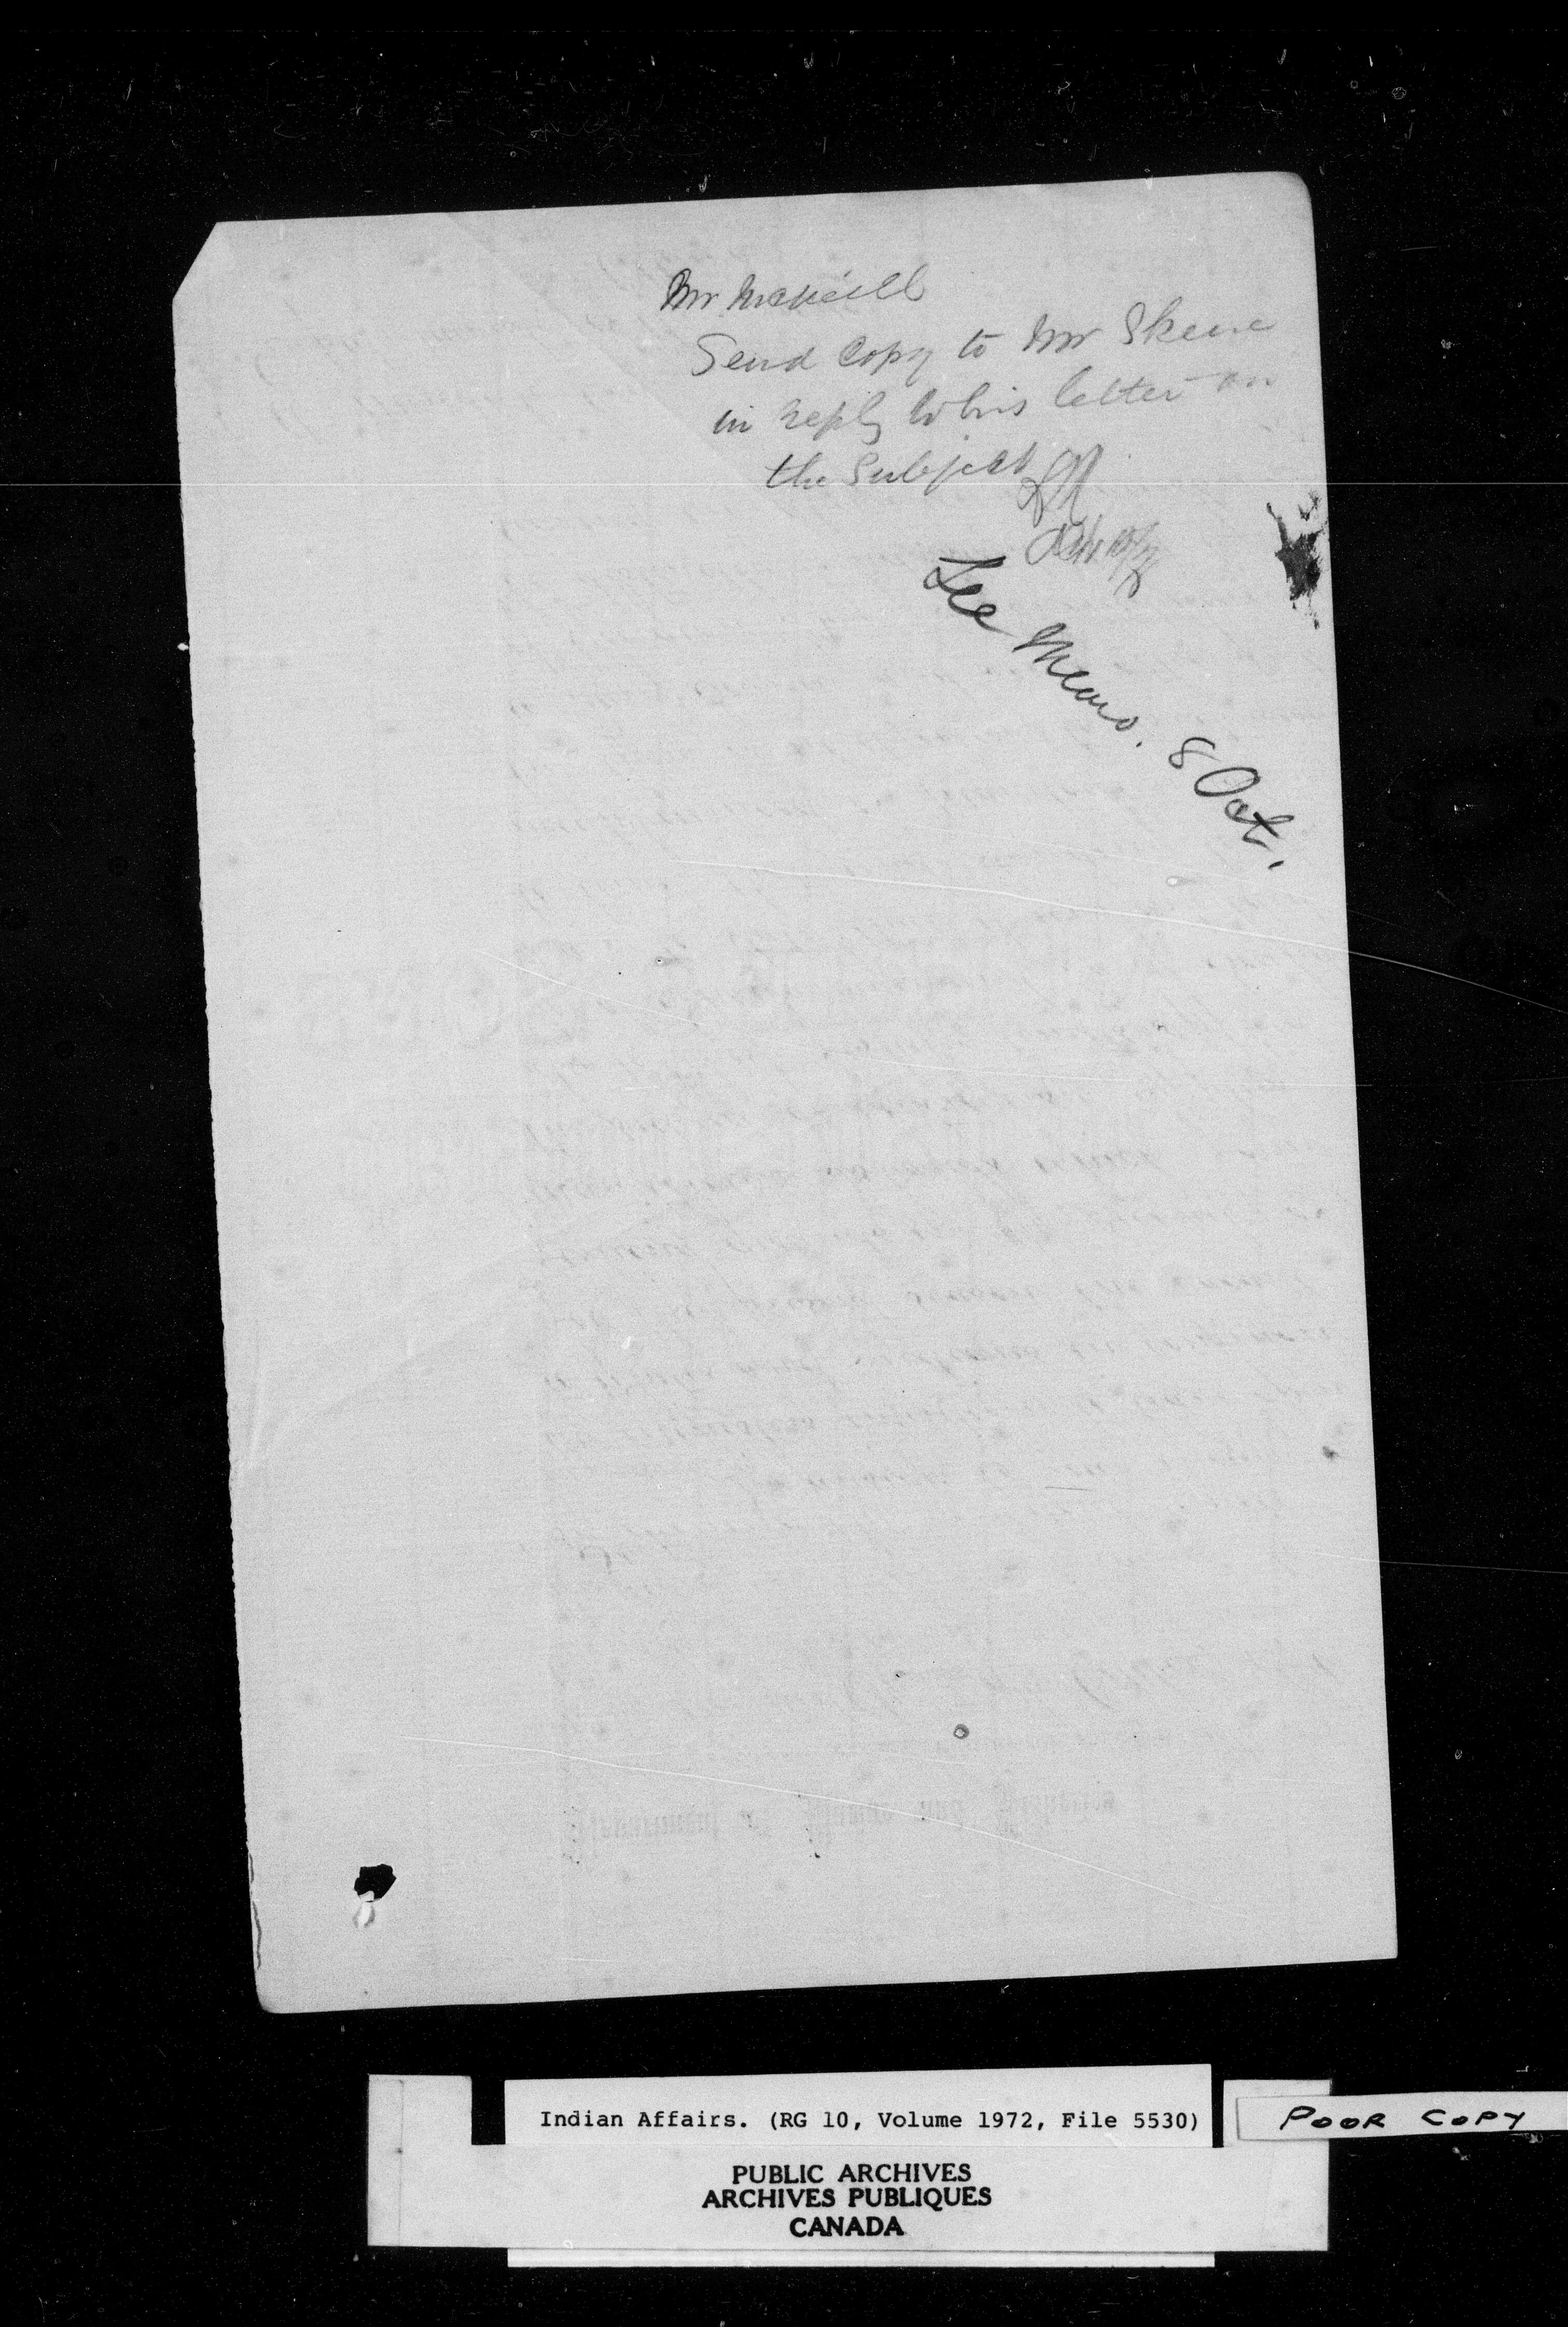 Mr McNeill
Send Copy to Mr Skene
in reply to his letter on
the Subject
See Memo. 8 Oct.
Indian Affairs. (RG 10, Volume 1972, File 5530)
POOR COPY
PUBLIC ARCHIVES
ARCHIVES PUBLIQUES
CANADA